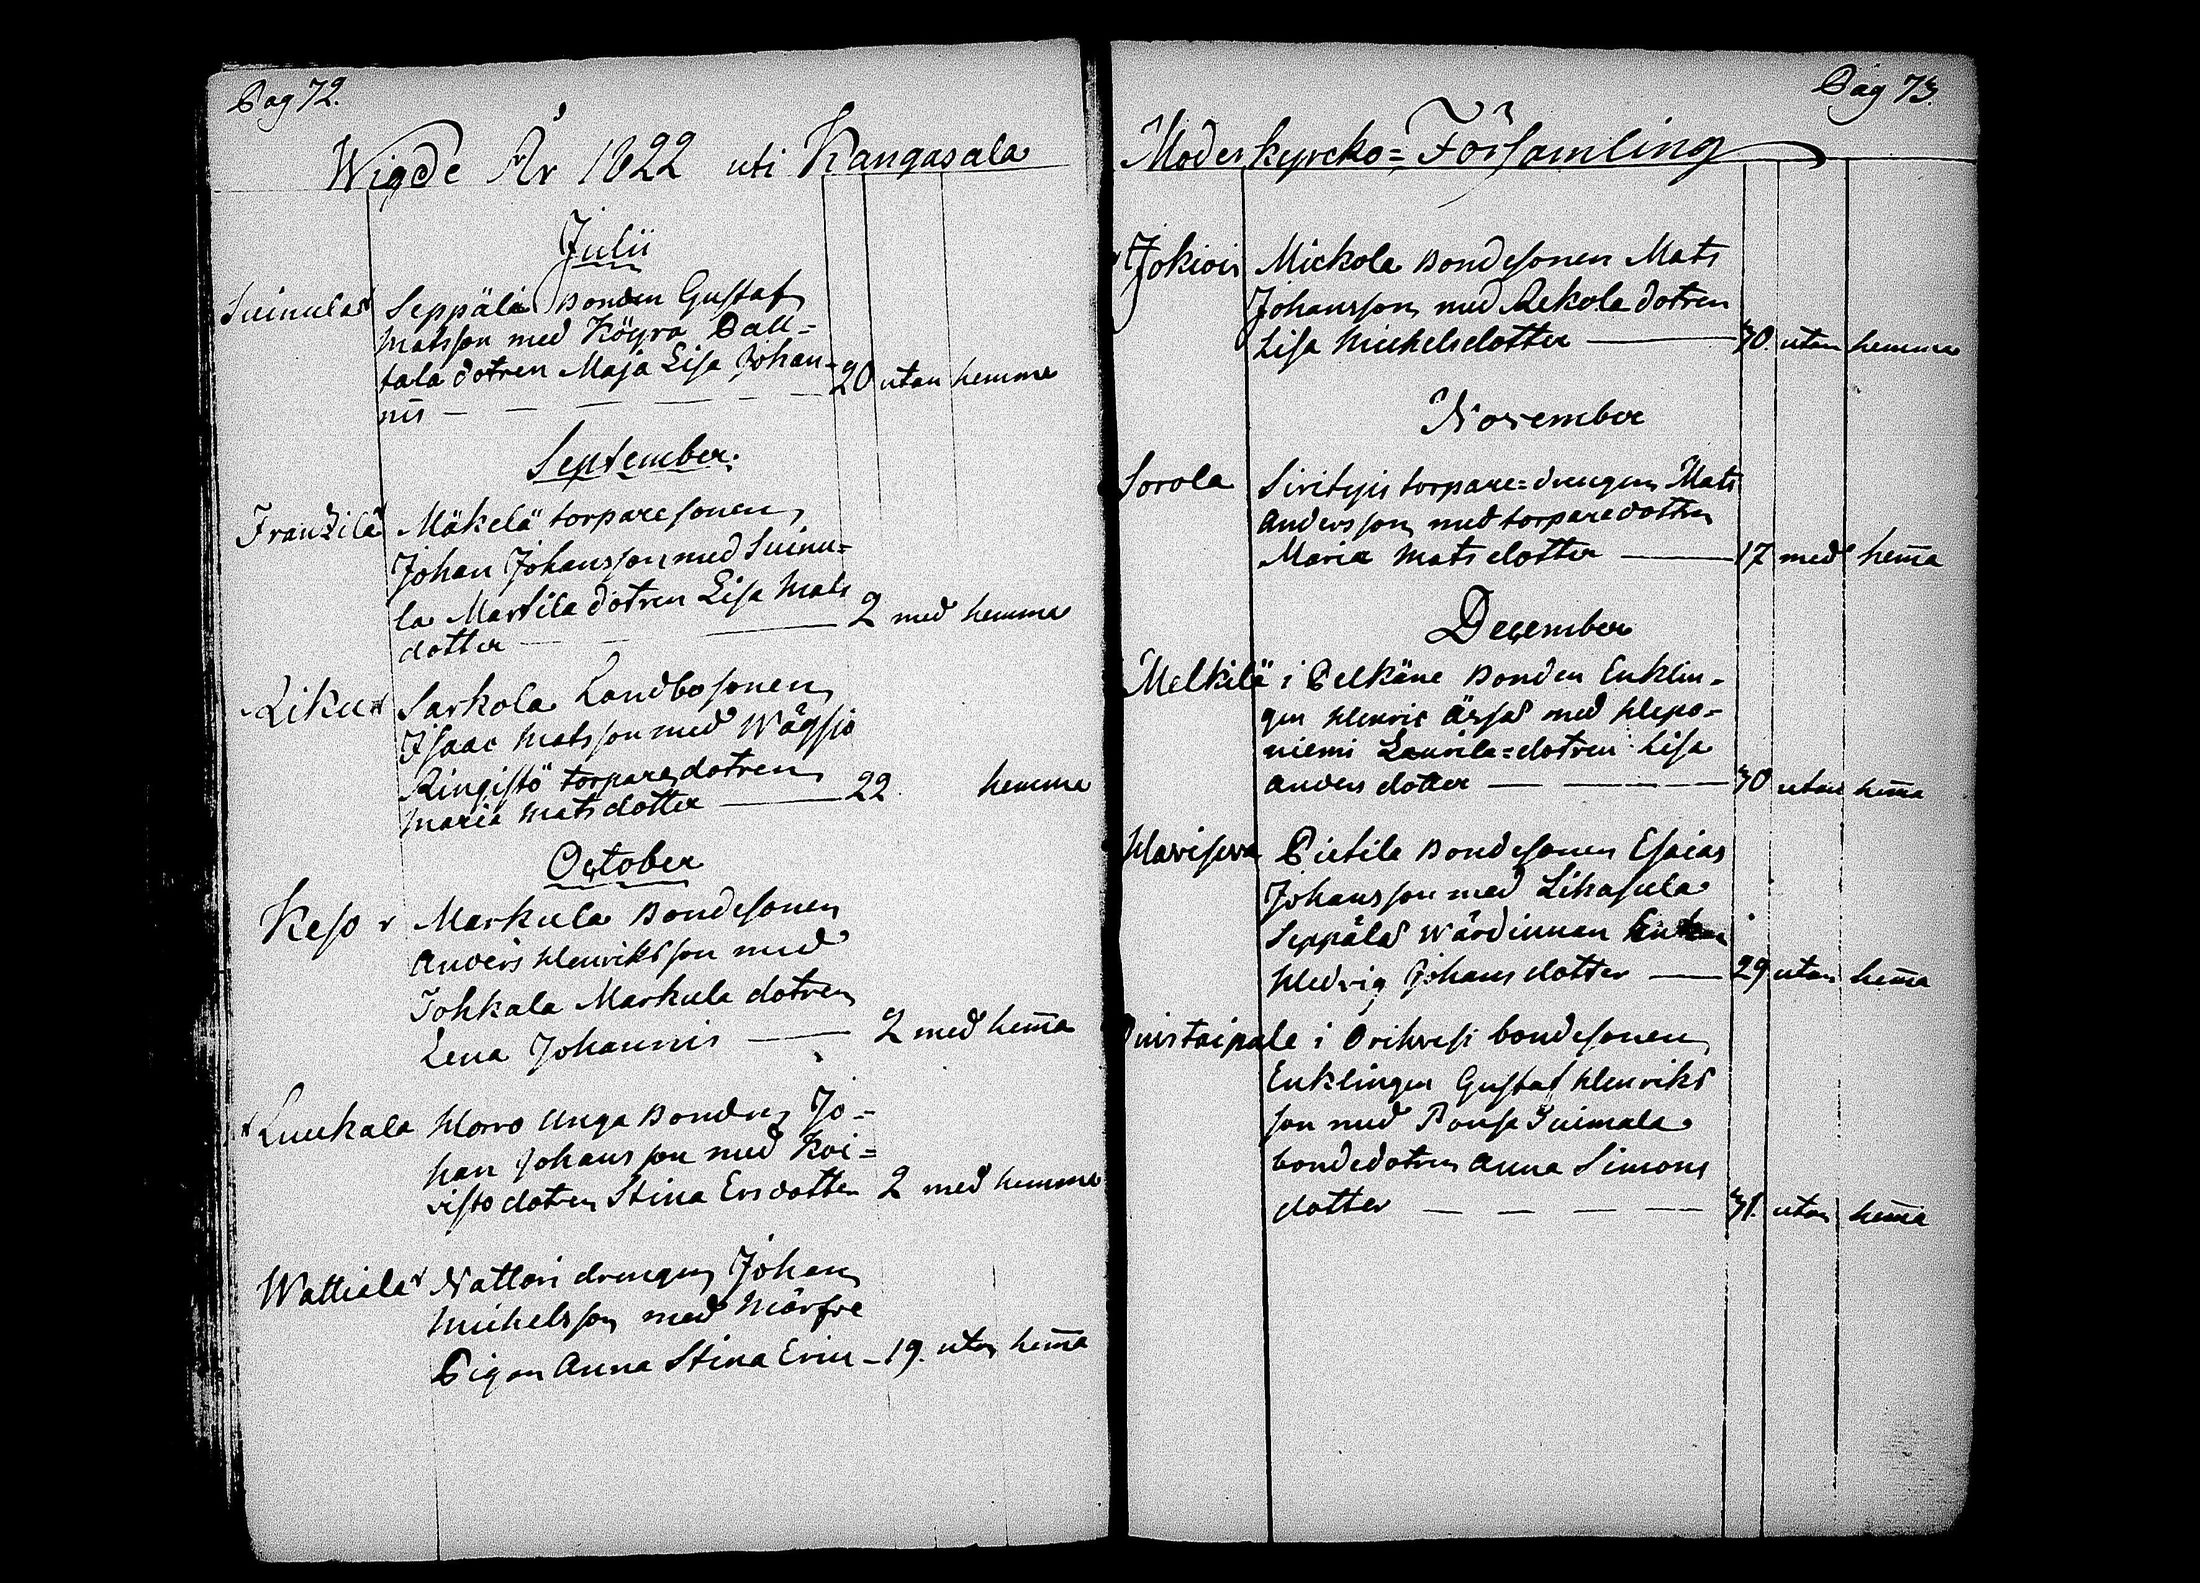 Pag 72.
Wigde År 1822 uti Kangasala
Julii
Suinula Seppälä Bonden Gustaf
Matsson med Köyrä Pall=
tala dotren Maja Lisa Johan=
nis — — — — — — 20 utan hemma
September.
Franzilä Mäkelä torparesonen
Johan Johansson med Suinu=
la Martila dotren Lisa Mats
dotter — — 2 med hemma
Liku Sarkola Landbosonen
Isaac Matsson med Wägsjo
Ringistö torparedotren
Maria Matsdotter — 22 hemma
October
Keso Markula Bondesonen
Anders Henriksson med
Tohkala Markula dotren
Lena Johannis — 2 med hem̅a
Luukala Horro Unga Bonden Jo=
han Johansson med Koi=
visto dotren Stina Ersdotter 2 med hemma
Wattiala Nattari drengen Johan
Michelsson med
Pigan Anna Stina Eric — 19. utan hem̅a
Pag 73.
Moderkyrcko=Församling
Jokiois Mickola Bondesonen Mats
Johansson med Rekola dotren
Lisa Michelsdotter — 30. utan hemma
November
Sorola torpare=drengen Mats
Andersson med torparedottren
Maria Matsdotter — 17 med hem̅a
December
Melkilä i Pelkäne Bonden Enklin=
gen Henric med Hepo=
niemi Laurila=dotren Lisa
Andersdotter — — — 30 utan hem̅a
Haviseva Pietila Bondesonen Esaias
Johansson med Lihasula
Seppälä Wärdinnan Enkan
Hedvig Johansdotter — 29 utan hem̅a
Puistaipale i Orihvesi bondesonen
Enklingen Gustaf Henriks
son med Ponsa Suimala
bondedotren Anna Simons
dotter — — — — 31. utan hem̅a